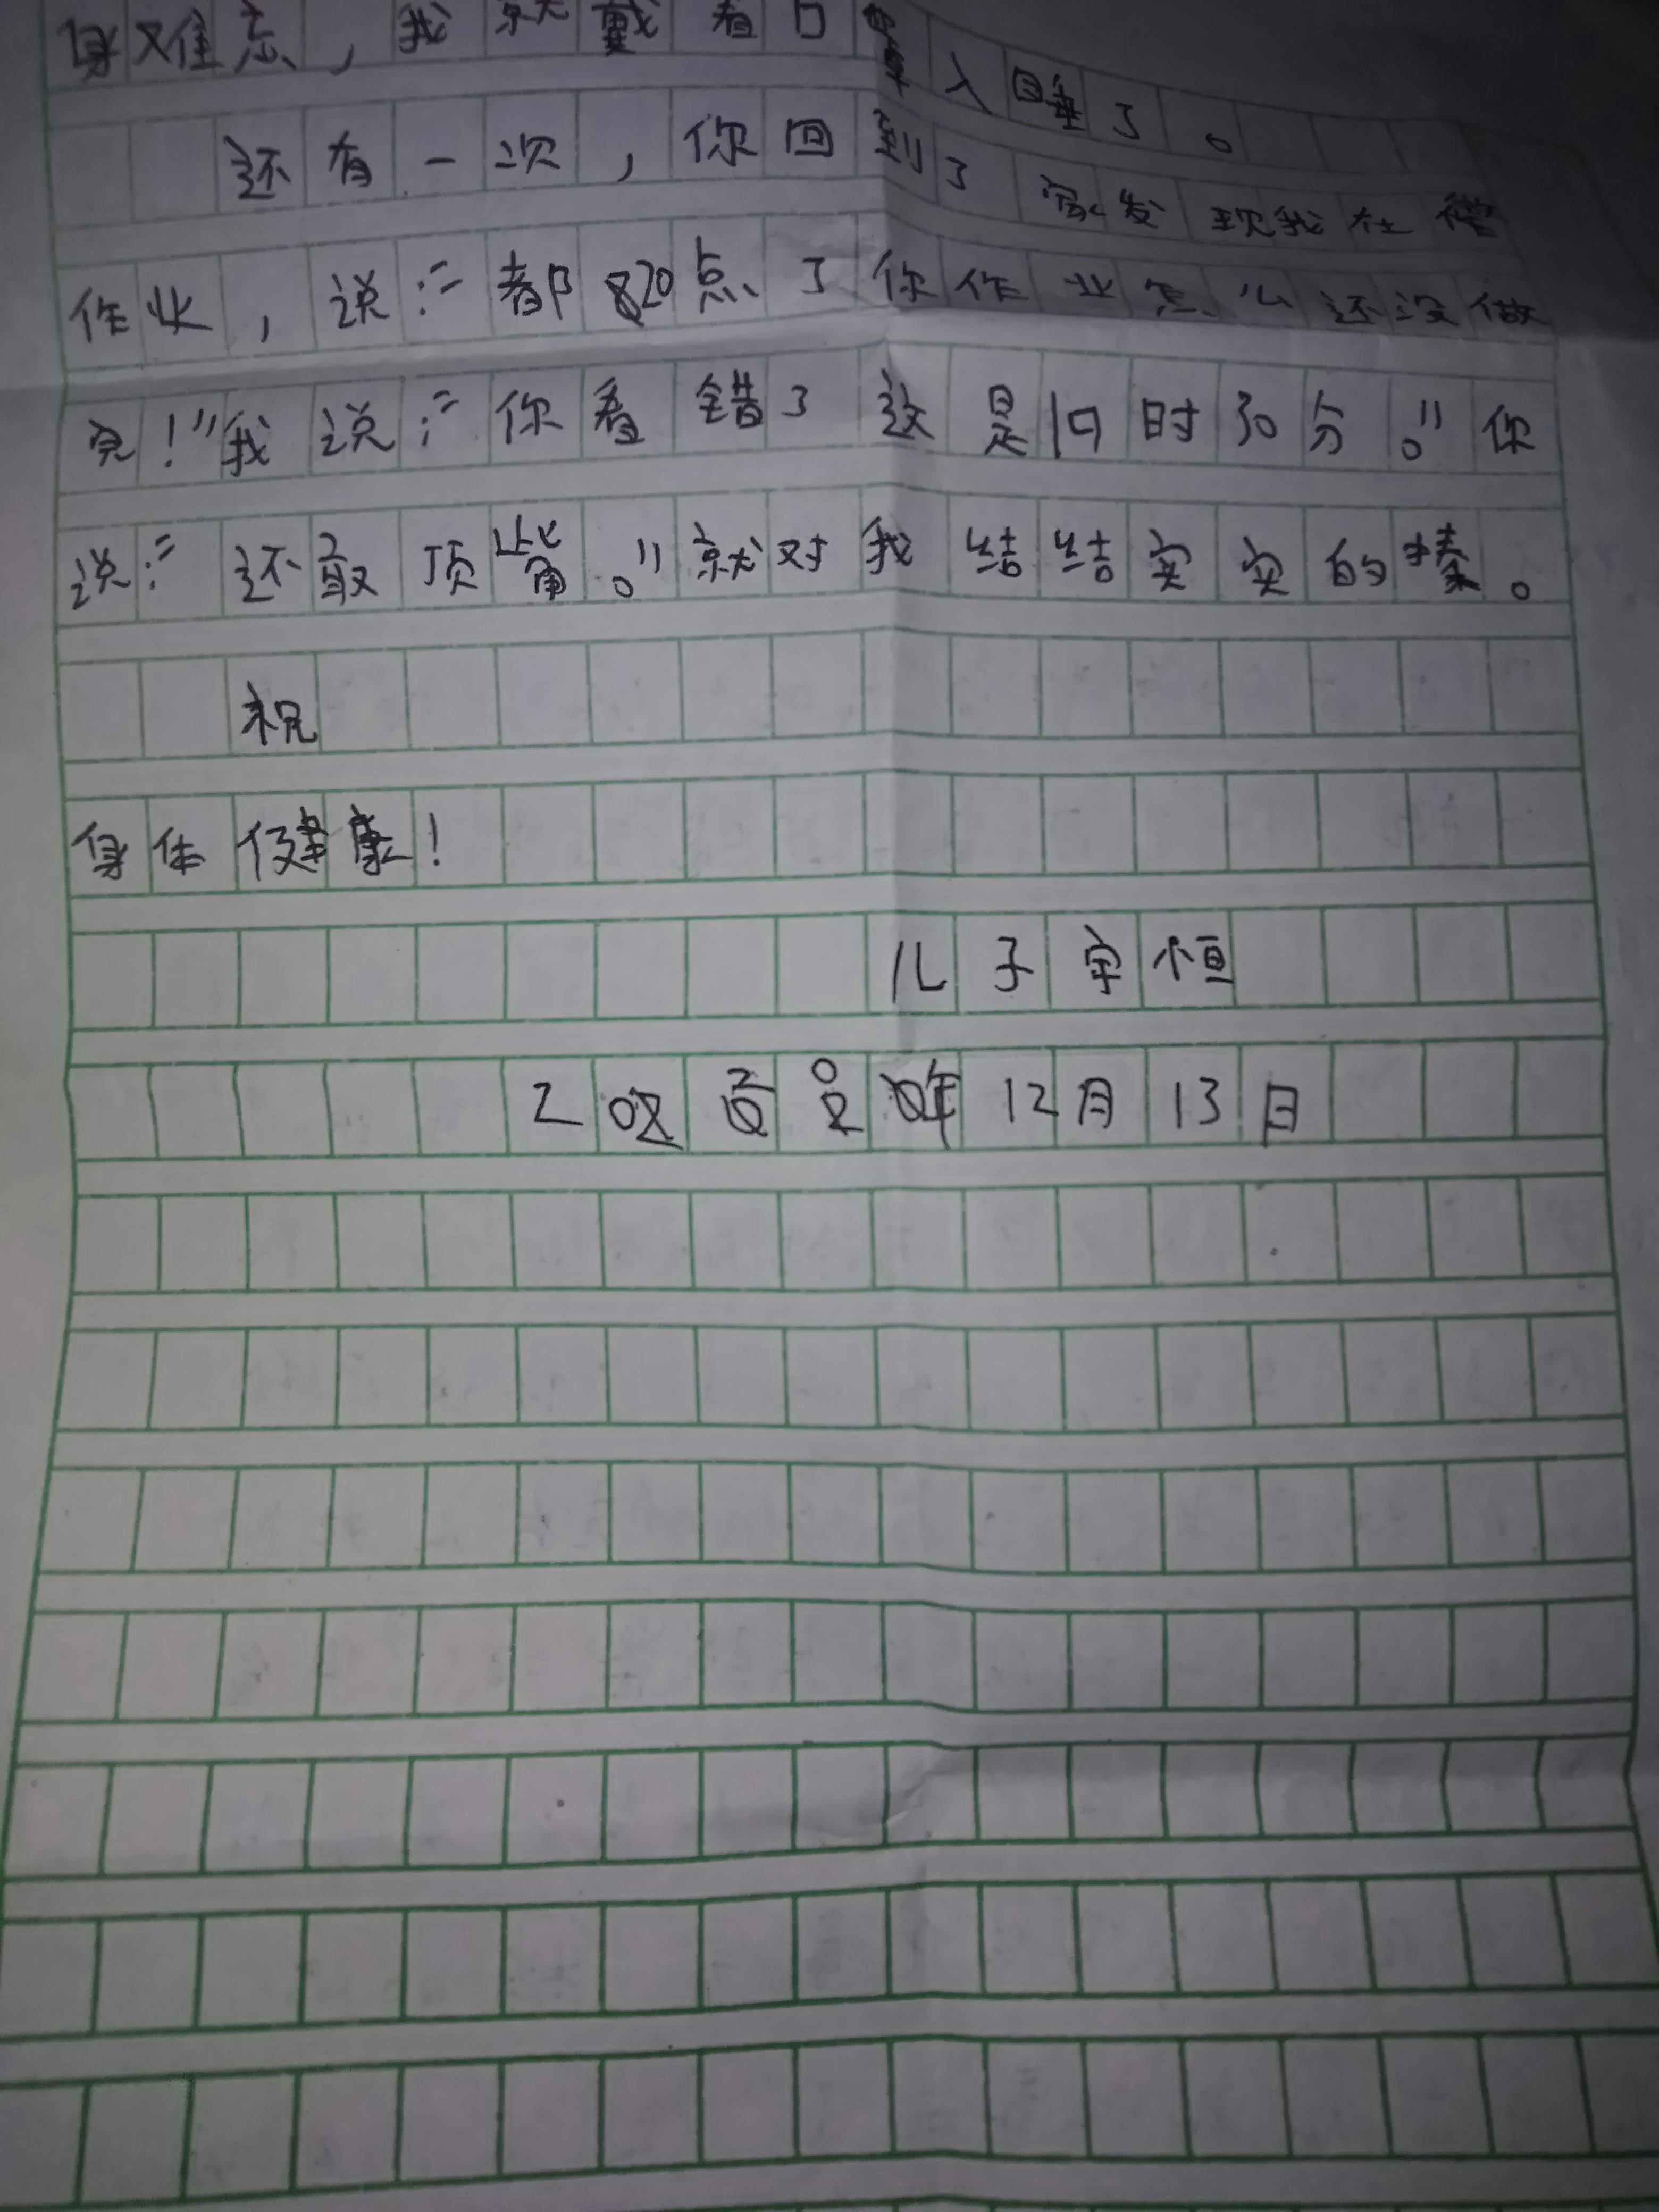 身难忘，我就戴着口罩入睡了。
还有一次，你回到了家发现我在做
作业，说：“都20点了你作业怎么还没做
完！”我说：“你看错了这是17时30分。”你
说：“还敢顶嘴。”就对我结结实实的揍。
祝
身体健康！
儿子宇恒
2020年12月13日